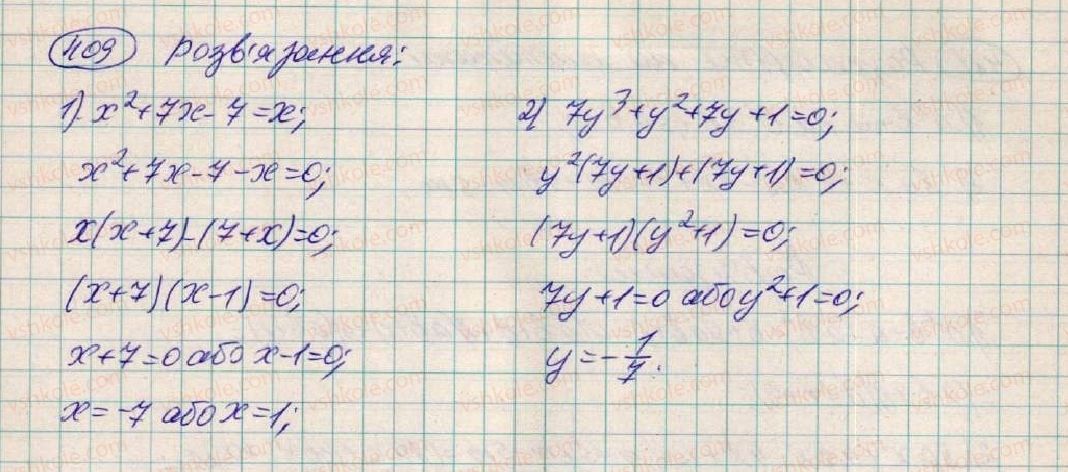 409 Розв'язання:
1) x²+7x-7=x;
x²+7x-7-x=0;
x(x+7)-(7+x)=0;
(x+7)(x-1)=0;
x+7=0 або x-1=0;
x=-7 або x=1;
2) 7y³+y²+7y+1=0;
y²(7y+1)+(7y+1)=0;
(7y+1)(y²+1)=0;
7y+1=0 або y²+1=0;
y=-1/7.